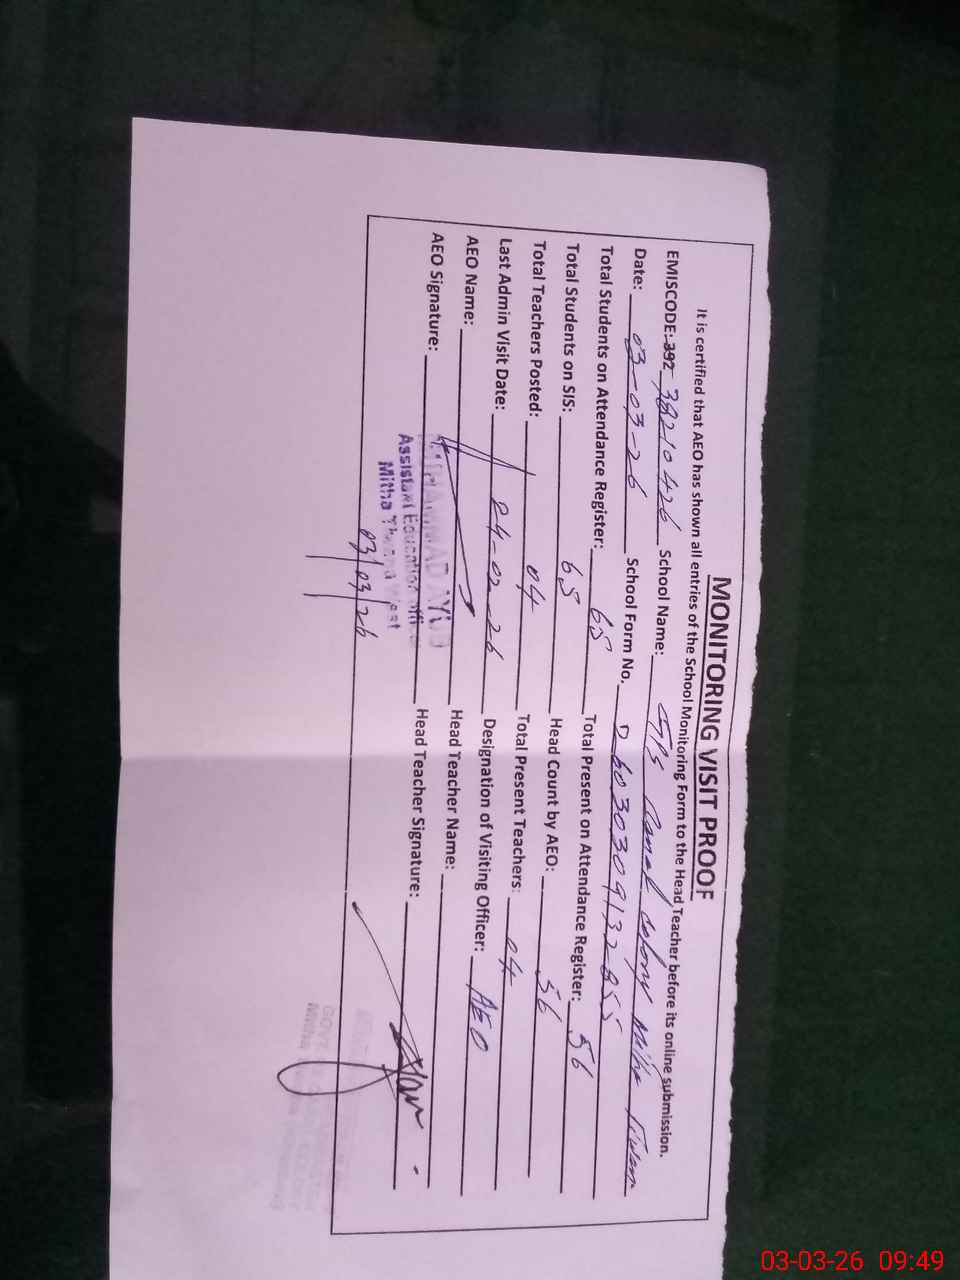 MONITORING VISIT PROOF
It is certified that AEO has shown all entries of the School Monitoring Form to the Head Teacher before its online submission.
EMISCODE: 392 38210426 School Name: GPS Colony Mitha Tiwana
Date: 03-03-26 School Form No. D 6030309132855
Total Students on Attendance Register: 65 Total Present on Attendance Register: 56
Total Students on SIS: 65 Head Count by AEO: 56
Total Teachers Posted: 04 Total Present Teachers: 04
Last Admin Visit Date: 24-02-26 Designation of Visiting Officer: AEO
AEO Name: Head Teacher Name:
AEO Signature: Head Teacher Signature:
MUHAMMAD AYUB
Assistant Education Officer
Mitha Tiwana West
03/03/26
03-03-26 09:49